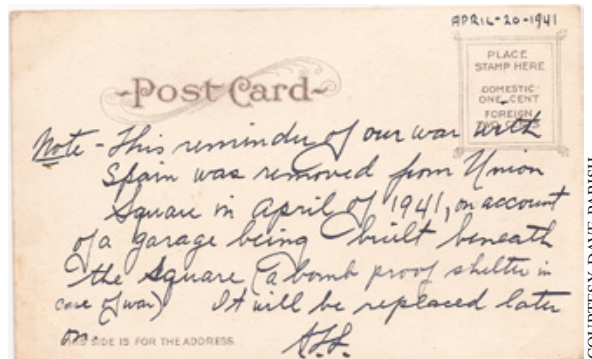 APRIL-20-1941
PLACE
STAMP HERE
DOMESTIC
ONE CENT
FOREIGN
TWO CENTS
-Post Card-
Note - This reminder of our war with
Spain was removed from Union
Square in April of 1941, on account
of a garage being built beneath
the Square (a bomb proof shelter in
case of war) It will be replaced later
on.
THIS SIDE IS FOR THE ADDRESS.
COURTESY DAVE PARISH